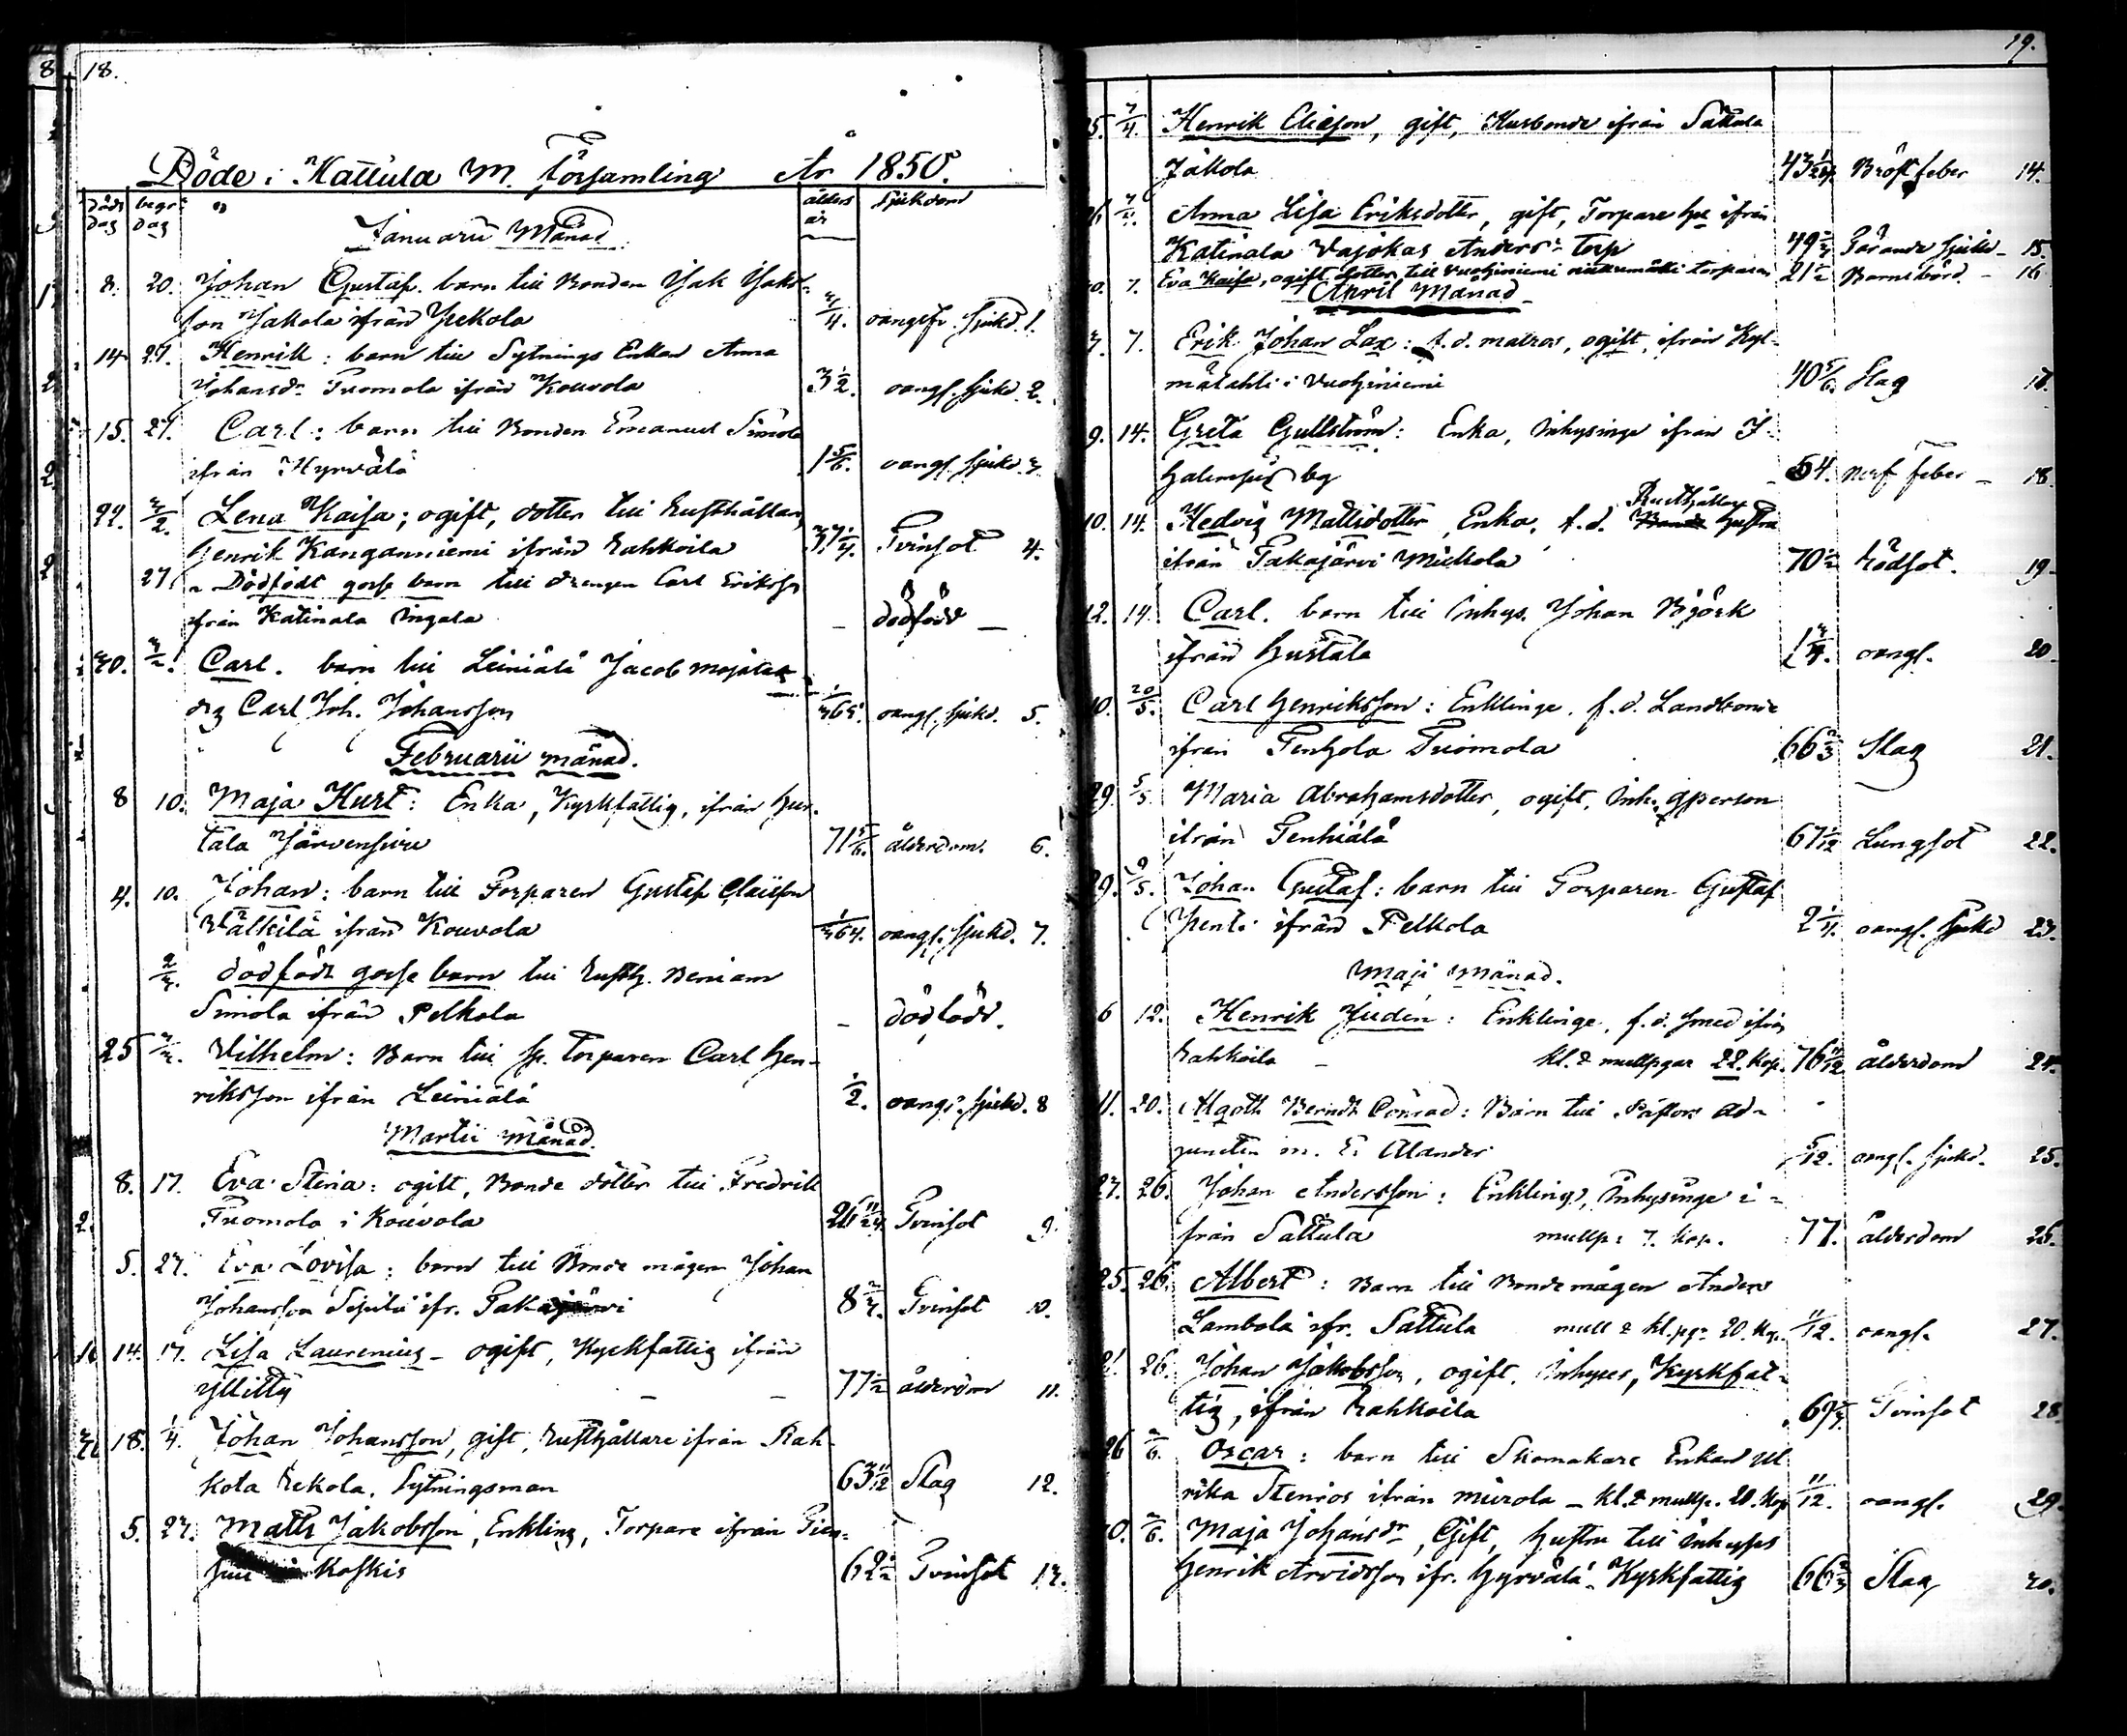 18.
Döde i Hattula M. Församling År 1850.
döds dag begr: dag ålders år Sjukdom
Januarii Månad
8. 20. Johan Gustaf. barn till Bonden Isak Isaks-
son Jakola ifrån Pekola 3/4. oangifv. sjukd. 1.
14 27. Henrik: barn till Sytnings Enkan Anna
Johansdr Tuomola ifrån Kouvola 3 1/2. oangf. sjukd. 2.
15. 27. Carl: barn till Bonden Emanuel Simola
ifrån Hyrvälä 1 5/6. oangf. sjukd. 3.
22. 3/2 Lena Kaisa; ogift, dotter till Rusthållar
Henrik Kanganniemi ifrån Rahkoila 37 1/4. Tvinsot 4.
27 Dödfödt gosse barn till drengen Carl Eriksson
från Katinala Ingala - dödfödd -
30. 3/2. Carl. barn till Leiniälä Jacob Mojatas
drg Carl Joh. Johansson 1/365. oangf. sjukd. 5.
Februarii månad.
8 10. Maja Hurt: Enka, Kyrkfattig, ifrån Hur-
tala Järvensivu 71 5/6. ålderdom. 6.
4. 10. Johan: barn till Torparen Gustaf Claësson
Wälkilä ifrån Kouvola 1/364. oangf. sjukd. 7.
2/3. dödfödt gosse barn till Rusth. Beniam
Simola ifrån Pelkola - dödfödd.
25 3/3. Vilhelm: Barn till sp. Torparen Carl Hen-
riksson ifrån Leiniälä 1/2. oangf. sjukd. 8
Martii Månad.
8. 17. Eva Stina: ogift, Bonde dotter till Fredrik
Tuomola i Kouvola 26 11/24 Tvinsot 9.
5. 27. Eva Lovisa: barn till Bonde mågen Johan
Johansson Sepilä ifr. Takajärvi 8 2/3. Tvinsot 10.
14. 17. Lisa Laurenius - ogift, Kyrkfattig ifrån
Yllitty - - 77 1/2 ålderdom 11.
18. 1/4. Johan Johansson, gift, Rusthållare ifrån Rah-
kola Rekola, Sytningsman 63 11/12 Slag 12.
5. 27. Matts Jakobsson, Enkling, Torpare ifrån
Koskis 62 1/2 Tvinsot 13.
19.
25. 7/4. Henrik Eliasson, gift, Husbonde ifrån Sattula
Jakola 43 1/24. Bröst feber 14.
26 7/4. Anna Lisa Eriksdotter, gift, Torpare hu ifrån
Katinala Vasokas Anders- torp 49 2/3 Tärande sjukd- 15.
30. 7. Eva Kaisa, ogift dotter till Vuohiniemi torparen 21 1/2 Barnsbörd - 16
April Månad
3. 7. Erik Johan Lax: f.d. matros, ogift, ifrån Kyl-
mälahti i Vuohiniemi 40 5/6. Slag 17.
9. 14. Greta Gullström: Enka, Inhysinge ifrån I-
halempié by 54. Nerf feber - 18.
Rusthållar
10. 14. Hedvig Mattsdotter, Enka, f.d. Bonde hustru
ifrån Takajärvi Mickola 70 1/2 Rödsot. 19.
12. 14. Carl. barn till Inhys. Johan Björk
ifrån Hurttala 1 3/4. oangf. 20.
10. 20/5. Carl Henriksson: Enklinge. f.d. Landbonde
ifrån Tenhola Tuomola 66 2/3 Slag 21.
29. 5/5. Maria Abrahamsdotter, ogift, Inh. qperson
ifrån Tenhiälä 67 1/12 Lungsot 22.
29. 9/5. Johan Gustaf: barn till Torparen Gustaf
Penti ifrån Pelkola 2 1/4. oangf. sjukd 23.
Maji Månad.
6 12. Henrik Hidén: Enklinge, f.d. smed ifrån
Rahkoila - kl. & mullpgar 22. kop. 76 11/12 ålderdom 24.
11. 20. Algoth Berndt Conrad: Barn till Pastors ad-
juncten m. E. Alander 5/12. oangf. sjukd. 25.
23. 26. Johan Andersson: Enkling, Inhysinge i-
från Sattula mullp: 7. kop. 77. ålderdom 26.
25. 26. Albert: Barn till Bondemågen Anders
Lambola ifr. Sattula mull & kl. pgr 20. kop. 11/12. oangf. 27.
21. 26. Johan Jakobsson, ogift, Inhyses, Kyrkfat-
tig, ifrån Rahkoila 69 2/3 Tvinsot 28.
26 2/6. Oscar: barn till Skomakare Enkan Ul
rika Stenros ifrån Mierola - kl. & mullp. 20. kop 11/12. oangf. 29.
30. 2/6. Maja Johansdr, Gift, hustru till Inhyses
Henrik Arvidsson ifr. Hyrvälä - Kyrkfattig 66 2/3 Slag 30.